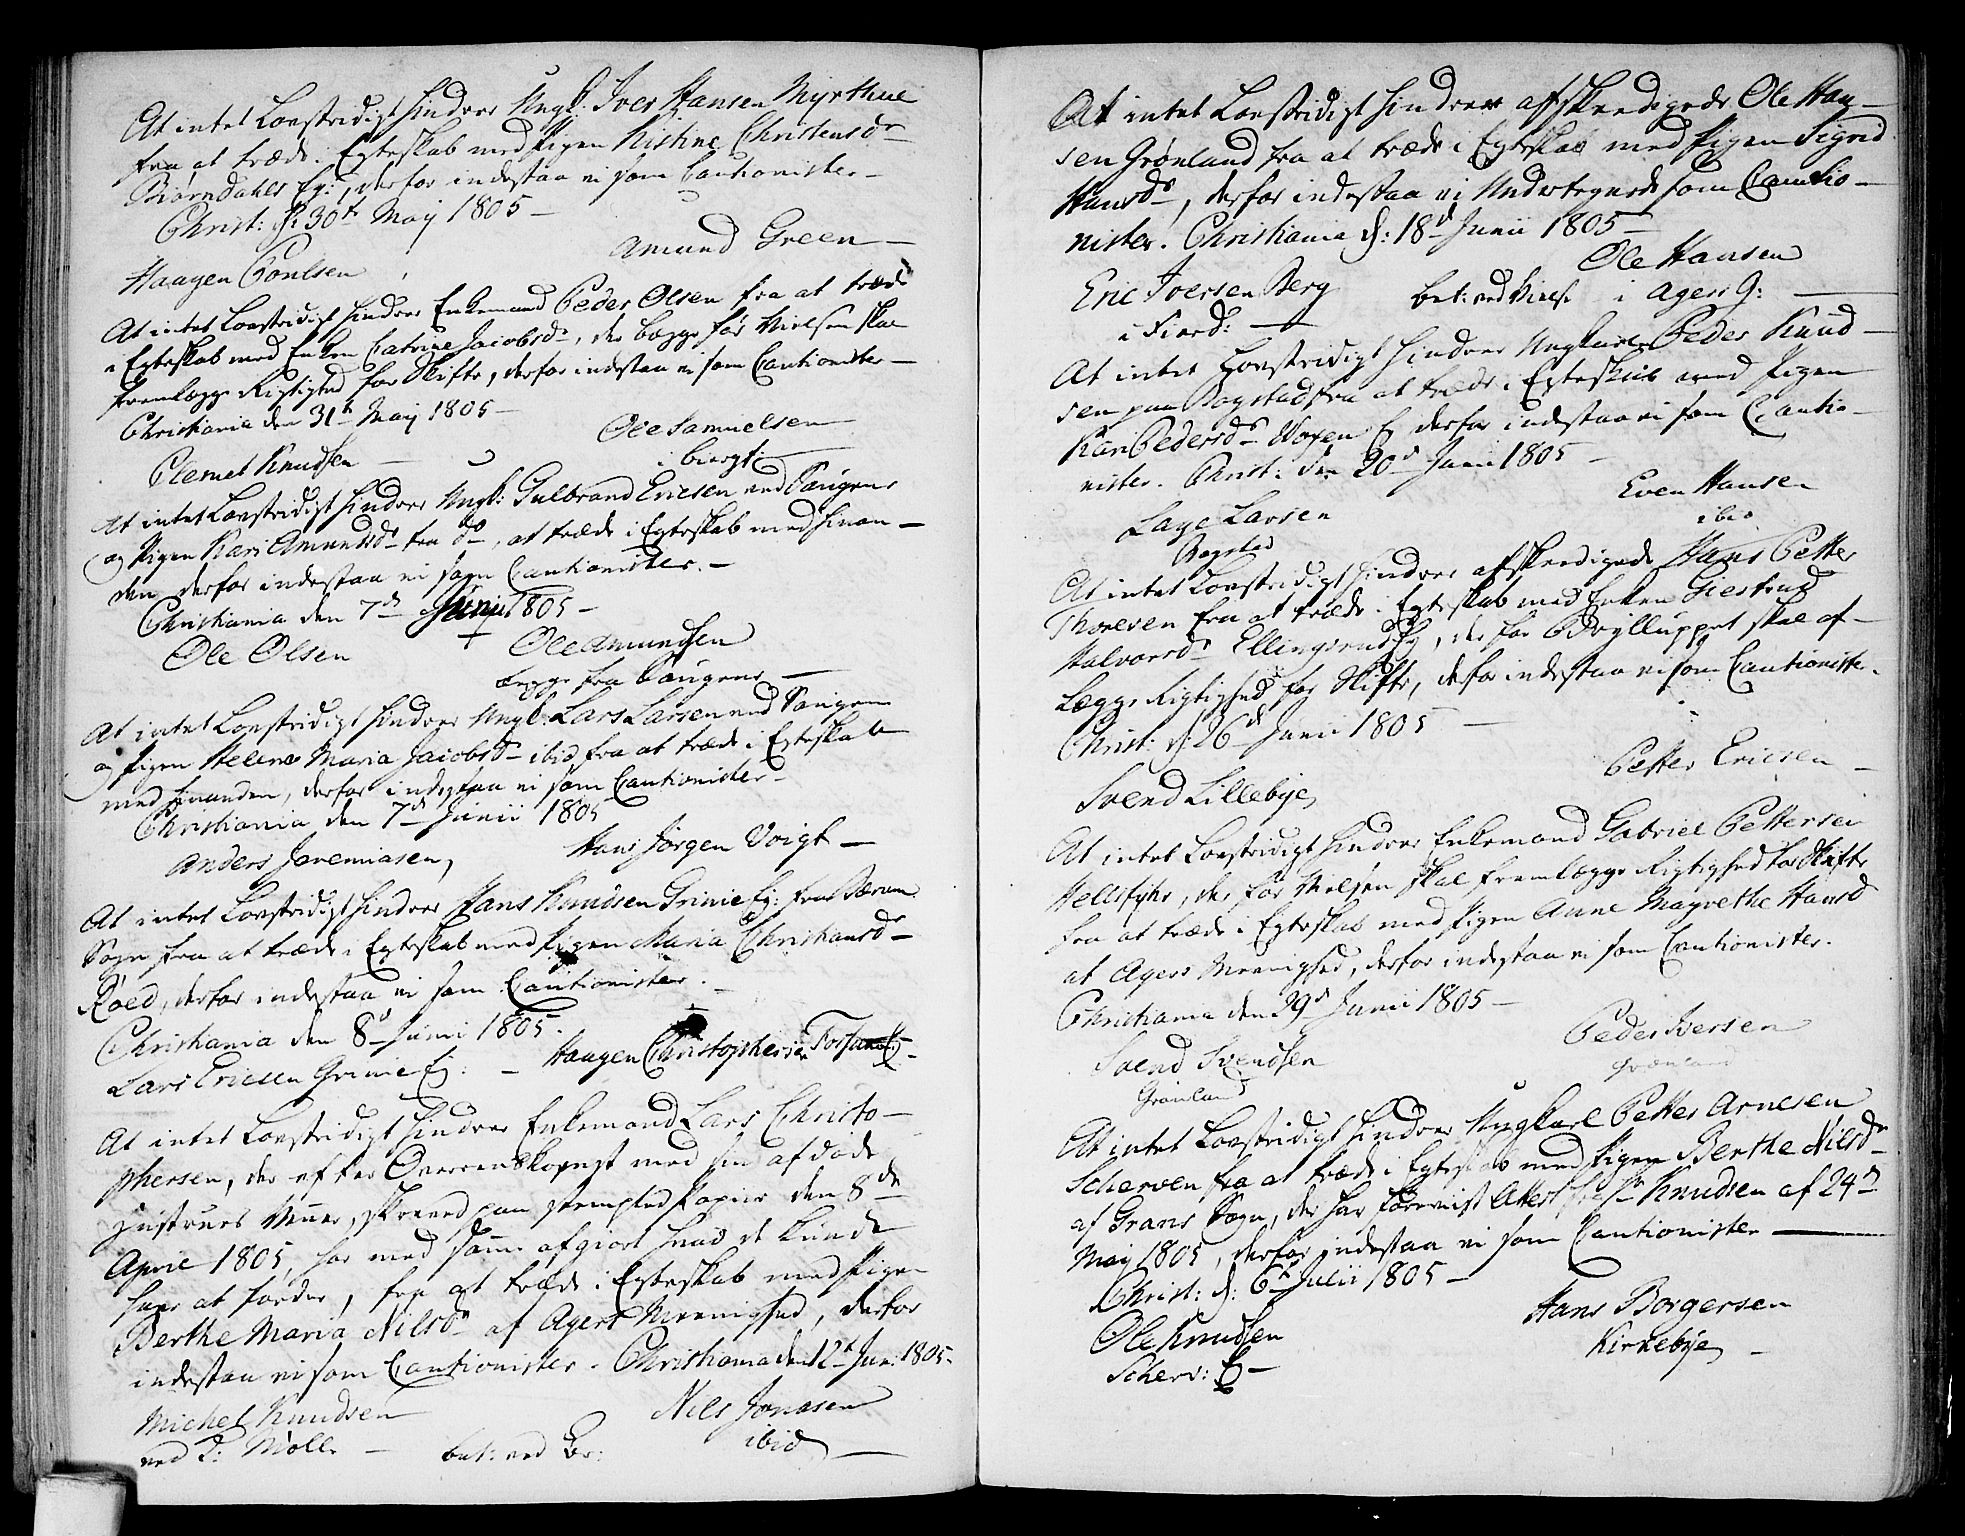 At intet Lovstridigt hindrer Ungk: Iver Hansen Myrthue
fra at træde i Egteskab med Pigen Kistine Christensdr
Biørndahls Eg:, derfor indestaa vi som Cautionister
Christ: d: 30te May 1805
Haagen Poulsen Amund Green
At intet Lovstridigt hindrer Enkemand Peder Olsen fra at træde
i Egteskab med Enken Catrine Jacobsdr, der begge før Vielsen skal
fremlægge Rigtighed for Skifte, derfor indestaa vi som Cautionister
Christiania den 31te May 1805
Clemet Knudsen Ole Samuelsen
At intet Lovstridigt hindrer Ungk: Gulbrand Ericsen ved Saugene
og Pigen Kari Amundsdr fra do, at træde i Egteskab med hinan-
den derfor indestaa vi som Cautionister.
Christiania den 7de Junii 1805
Ole Olsen Ole Amundsen
begge fra Saugene
At intet Lovstridigt hindrer Ungk. Lars Larsen ved Saugene
og Pigen Helene Maria Jacobsdr ibid, fra at træde i Egteskab
med hinanden, derfor indestaa vi som Cautionister
Christiania den 7de Junii 1805
Anders Jeremiasen, Hans Jørgen Voigt
At intet Lovstridigt hindrer Hans Knudsen Grinie Eg: fra Bærum
Sogn fra at træde i Egteskab med Pigen Maria Christiansdr
Røed, derfor indestaa vi som Cautionister.
Christiania den 8de Junii 1805.
Lars Ericsen Grinie Eg: Haagen Christophersen
At intet Lovstridigt hindrer Enkemand Lars Christo-
phersen, der efter Overeenskomst med sin afdøde
Hustrues Venner, skreved paa stempled Papiir den 8de
April 1805, har med samme afgiort hvad de kunde
have at fordre, fra at træde i Egteskab med Pigen
Berthe Maria Nilsdr af Agers Meenighed, derfor
indestaa vi som Cautionister. Christiania den 12te Jun: 1805.
Michel Knudsen Nils Jonasen
ved Mølle bet: ved Br: ibid
At intet Lovstridigt hindrer afskeedigede Ole Han-
sen Grønland fra at træde i Egteskab med Pigen Sigrid
Hansdr, derfor indestaa vi Undertegnede som Cautio-
nister. Christiania d: 18de Junii 1805
Ole Hansen
Eric Iversen Berg bet: ved Vielse i Agers
At intet Lovstridigt hindrer Ungkarl Peder Knud-
sen paa Bogstad fra at træde i Egteskab med Pigen
Kari Pedersdr Voxen E derfor indestaa vi som Cautio-
nister. Christ: den 20de Junii 1805
Lage Larsen Even Hansen
Bogstad ibid
At intet Lovstridigt hindrer afskeedigede Hans Petter
Thoresen fra at træde i Egteskab med Enken Giertrud
Halvorsdr Ellingsrud Eg, der før Brylluppet skal af-
lægge Rigtighed for Skifte, derfor indestaa vi som Cautionister.
Christ: d: 26de Junii 1805
Svend Lillebye, Petter Ericsen
At intet Lovstridigt hindrer Enkemand Gabriel Pettersen
Helsfyhr, der før Vielsen skal fremlægge Rigtighed for Skifte
fra at træde i Egteskab med Pigen Anne Magrethe Hansd
af Agers Meenighed, derfor indestaa vi som Cautionister.
Christiania den 29de Junii 1805
Svend Svendsen Peder Iversen
Grønland Grønland
At intet Lovstridigt hindrer Ungkarl Petter Arnesen
Scherven fra at træde i Egteskab med Pigen Berthe Nilsdr
af Grans Sogn, der har foreviist Attest fra Hr Knudsen af 24de
May 1805, derfor indestaa vi som Cautionister
Christ: d: 6te Julii 1805
Ole Knudsen Hans Borgersen
Scherv: E Kirkebye